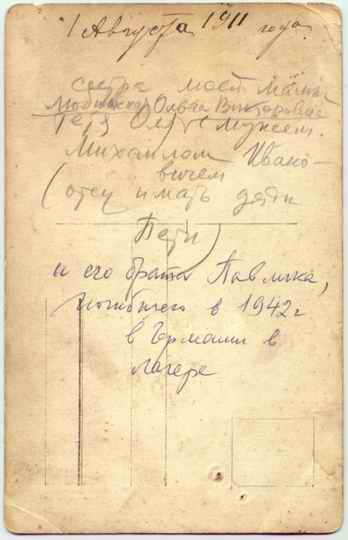 1 Августа 1911 года.
сестра моей мамы
Ольга Викторовна
Тетя Оля с мужем
Михаилом Ивано-
вичем
(отец и мать дяди
Пети)
и его брата Павлика,
погибшего в 1942 г
в Германии в
лагере